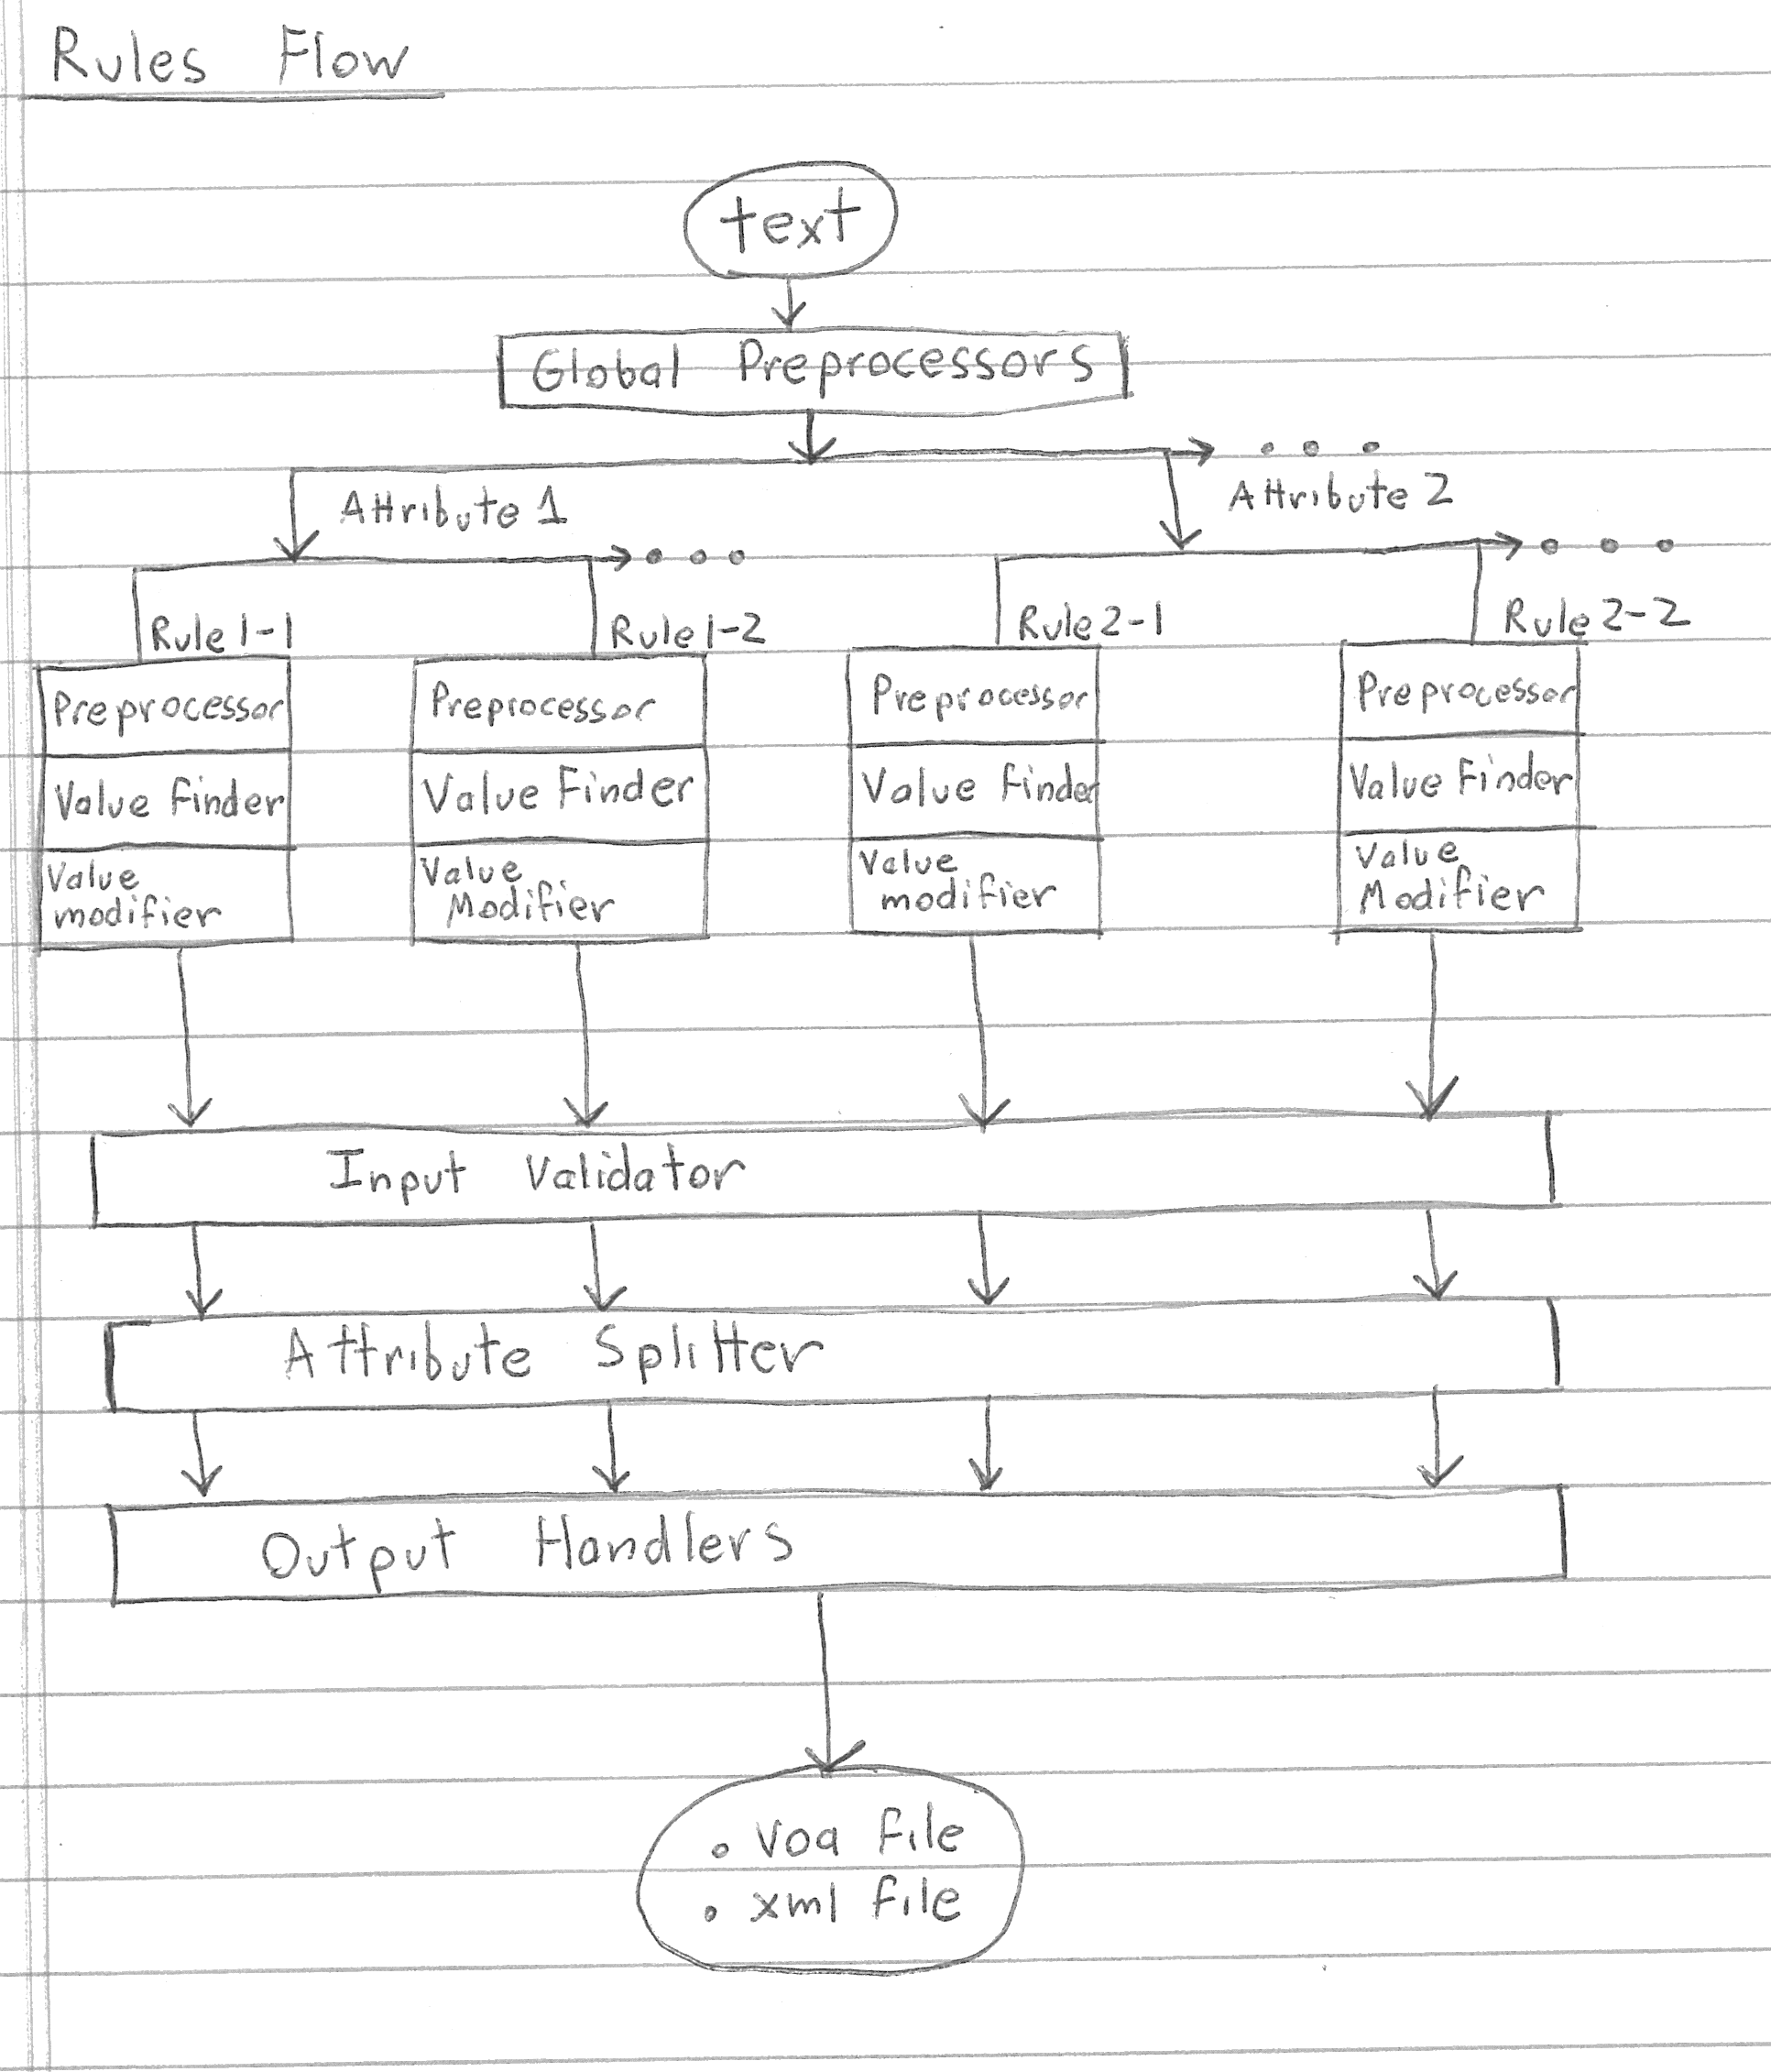 Rules Flow
text
Global Preprocessors
Attribute 1
Attribute 2
Rule 1-1
Rule 1-2
Rule 2-1
Rule 2-2
Preprocessor
Preprocessor
Preprocessor
Preprocessor
Value Finder
Value Finder
Value Finder
Value Finder
Value
modifier
Value
Modifier
Value
modifier
Value
Modifier
Input Validator
Attribute Splitter
Output Handlers
. voa file
. xml file